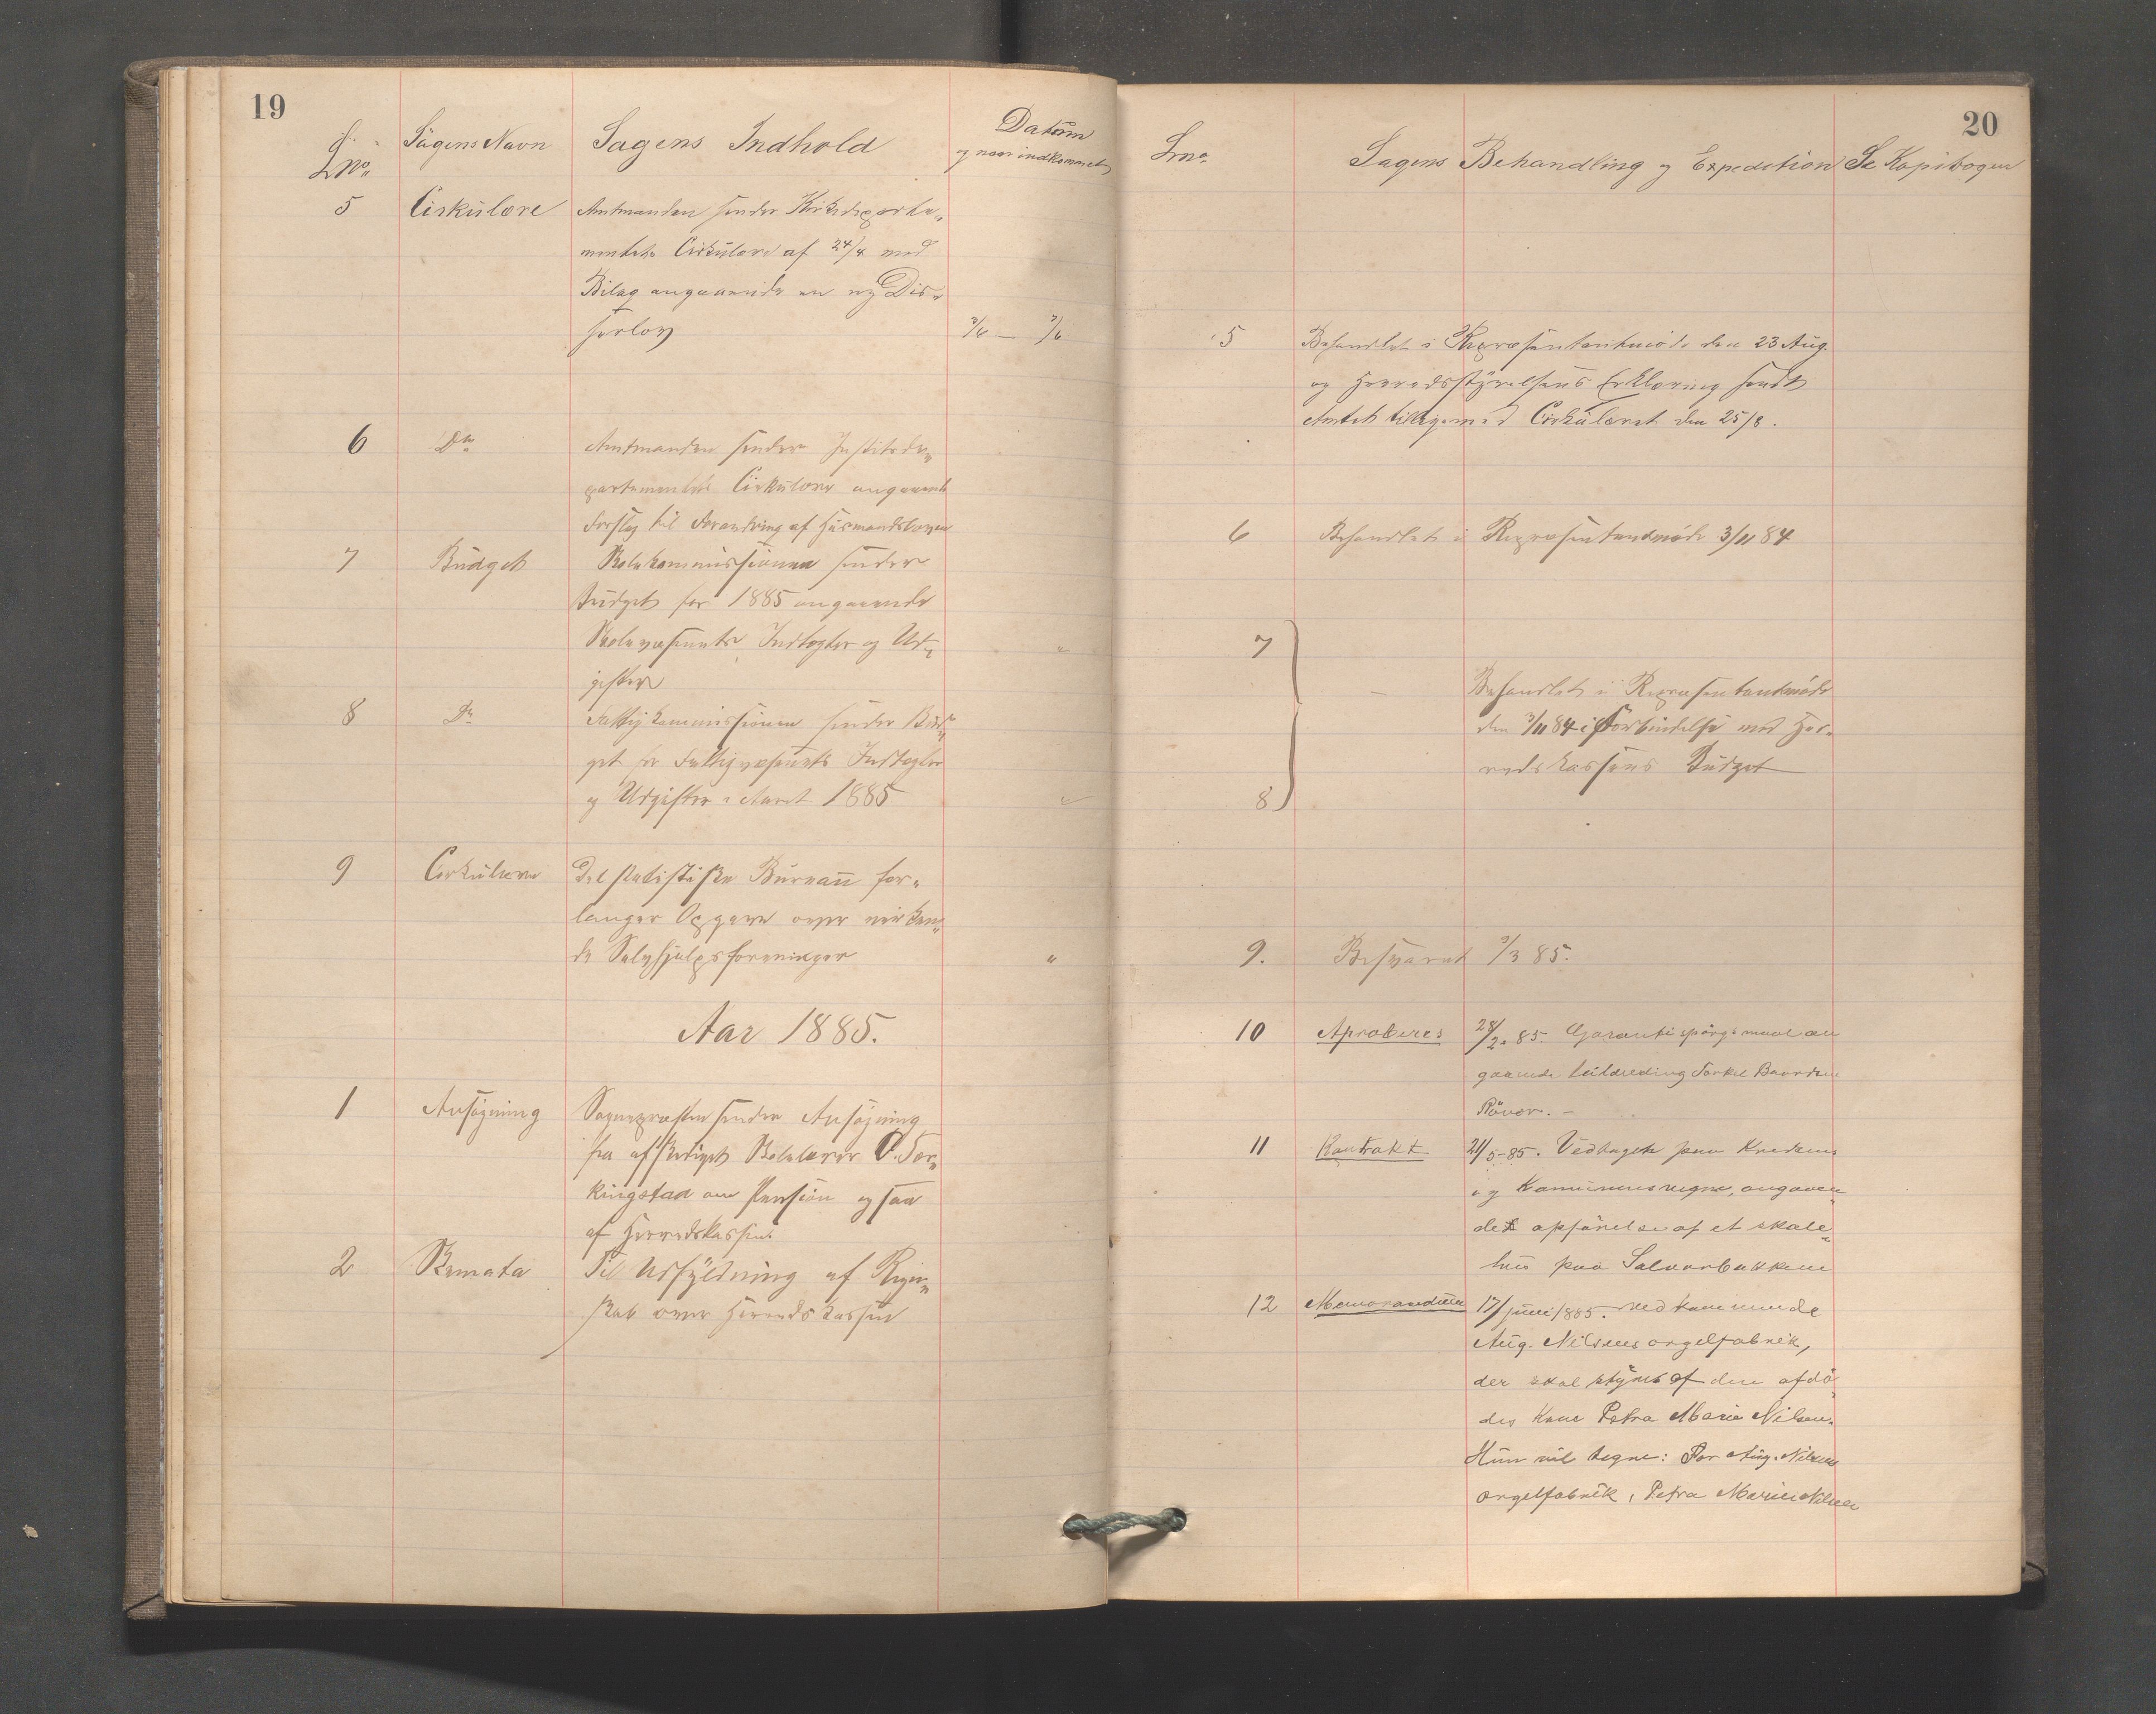 19
Lno
Sagens Navn
Sagens Indhold
Datum
og naar indkommet
5 Cirkulære Amtmanden sender Kirkedeparte„
mentets Cirkulære af 24/4 med
Bilag angaaende en ny Dis„
senterlov 3/6 — 7/6
6 Do Amtmanden sender Justitsde„
partementets Cirkulære angaaende
Forslag til Forandring af Husmandsloven
7 Budget Skolekommissionen sender
Budget for 1885 angaaende
Skolevæsenets Indtægter og Ud„
gifter
8 Do Fattigkommissionen sender Bud„
get for Fattigvæsenets Indtægter
og Udgifter i Aaret 1885
9 Cirkulære Det statistiske Bureau for„
langer Opgave over virken„
de Selvhjælpsforeninger "
Aar 1885.
1 Ansøgning Sognepræsten sender Ansøgning
fra afskediget Skolelærer O. Tor„
kingstad om Pension ogsaa
af Herredskassen
2 Skemata Til Udfyldning af Regn„
skab over Herredskassen
20
Lno
Sagens Behandling og Expedition Se Kopibogen
5 Behandlet i Repræsentantmøde den 23 Aug.
og Herredsstyrelsens Erklæring sendt
Amtet tilligemed Cirkulæret den 25/8.
6 Behandlet i Repræsentantmøde 3/11 84
7
Behandlet i Repræsentantmøde
den 3/11 84 i Forbindelse med Her„
redskassens Budget
8
9. Besvaret 9/3 85.
10 Aproberes 28/2. 85. Garantispørgsmaal an
gaaende Torkel Baardsen
Røver. –
11 Kontrakt 21/5-85. Vedtaget paa Kredsens
og Kommunens vegne, angaaen„
de opførelse af et skole„
hus paa Salvorbakken
12 Memorandum 17/juni 1885. vedkommende
Aug. Nilsens orgelfabrik,
der skal styres af den afdø„
des Kone Petra Marie Nilsen.
Hun vil tegne: For Aug. Nilsens
orgelfabrik, Petra Marie Nilsen